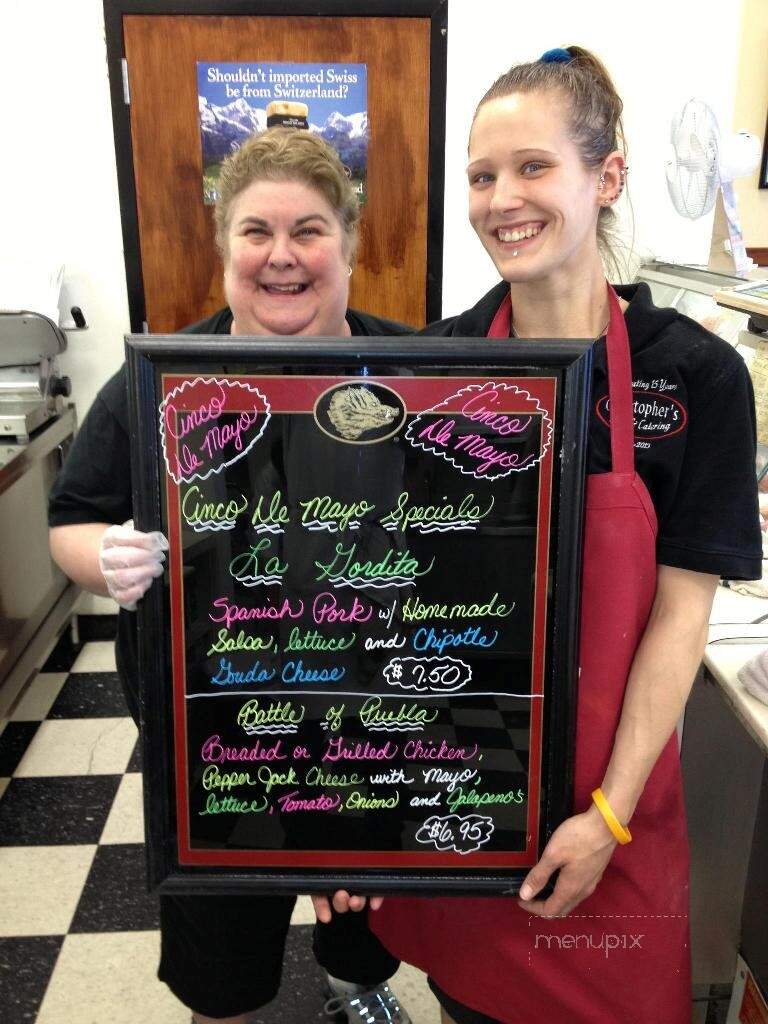 Shouldn't imported Swiss
be from Switzerland?
Cinco
De Mayo
Cinco
De Mayo
Cinco De Mayo Specials
La Gordita
Spanish Pork w/ Homemade
Salsa, lettuce and Chipotle
Gouda Cheese $7.50
Battle of Puebla
Breaded or Grilled Chicken,
Pepper Jack Cheese with Mayo,
lettuce, Tomato, Onions and Jalapeno's
$6.95
ating 15 Years
topher's
& Catering
menupix